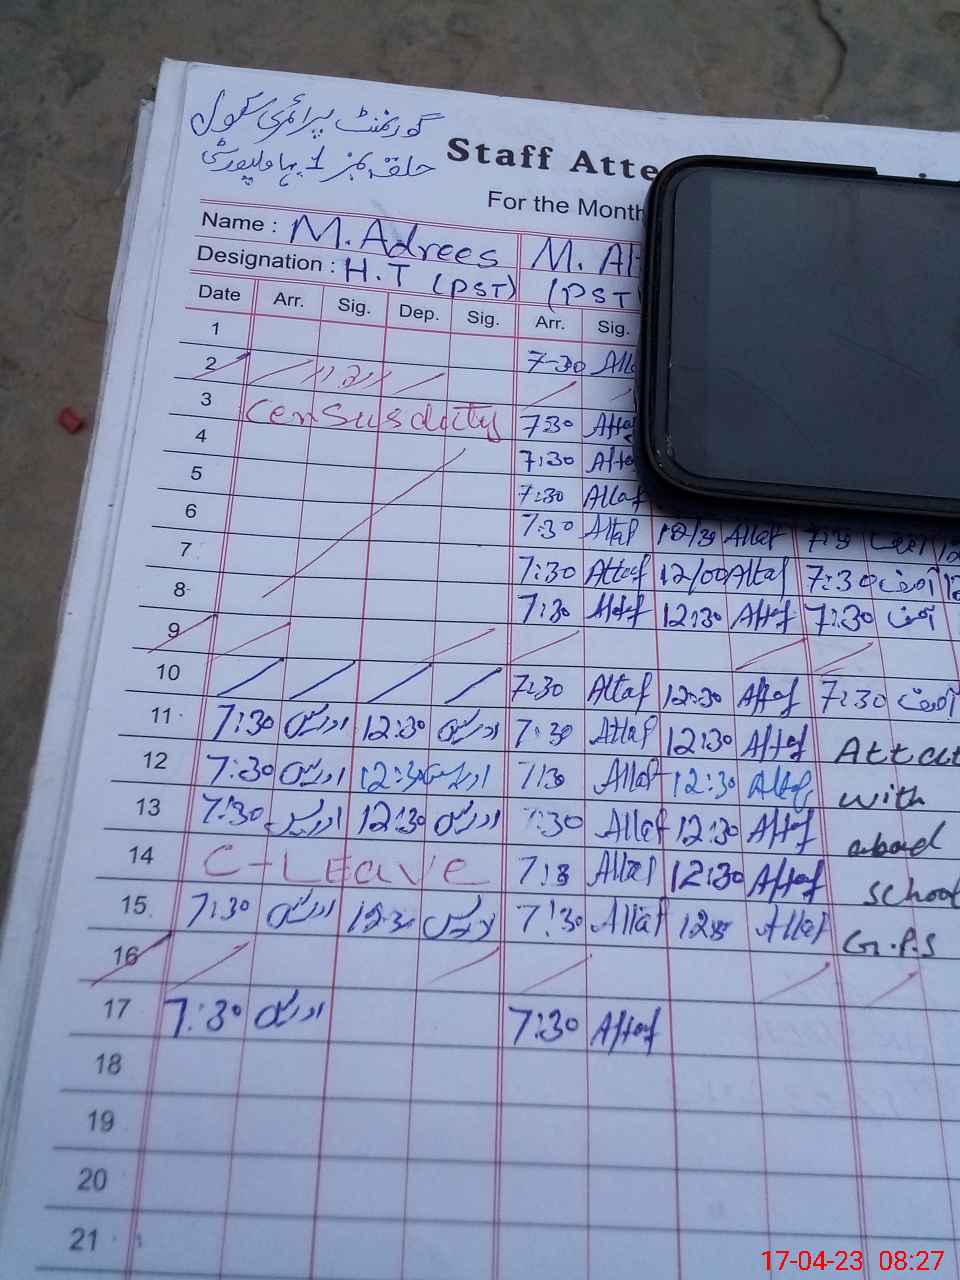 گورنمنٹ پرائمری سکول
حلقہ نمبر 1
Staff Atte
For the Month
Name : M. Adrees M. Alt
Designation : H.T (PST) (PST
Date Arr. Sig. Dep. Sig. Arr. Sig.
1 7-30
2
3 Census duty 7:30
4 7:30
5 7:30 Altaf
6 7:30 Altaf 12/30 Altaf 7:30
7 7:30 Altaf 12/00 Altaf 7:30
8 7:30 Altaf 12:30 Altaf 7:30
9
10 7:30 Altaf 12:30 Altaf 7:30
11 7:30 ادریس 12:30 ادریس 7:30 Altaf 12:30 Altaf Attat
12 7:30 ادریس 12:30 ادریس 7:30 Altaf 12:30 Altaf with
13 7:30 ادریس 12:30 ادریس 7:30 Altaf 12:30 Altaf abad
14 C-Leave 7:3 Altaf 12:30 Altaf school
15 7:30 ادریس 12:30 ادریس 7:30 Altaf Altaf G.P.S
16
17 7:30 ادریس 7:30 Altaf
18
19
20
21
17-04-23 08:27